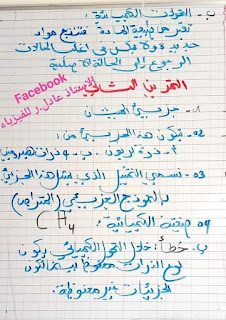 ب- التحولات الكيميائية:
تغير من طبيعة المادة فتنتج مواد
جديدة ولا يمكن في أغلب الحالات
الرجوع إلى الحالة الأصلية
Facebook
الأستاذ عادل.ر للفيزياء
التمرين الثاني
1- جزيء الميثان
02- يتكون هذا الجزيء من
أ- ذرة كربون ب- 4 ذرات هيدروجين
03- نسمي التمثيل الذي يمثل هذا الجزيء
بالنموذج الجزيئي (المتراص)
04 صيغته الكيميائية: CH4
ب- خطأ: خلال التحول الكيميائي يكون
نوع الذرات محفوظا بينما تكون
الجزيئات غير محفوظة.